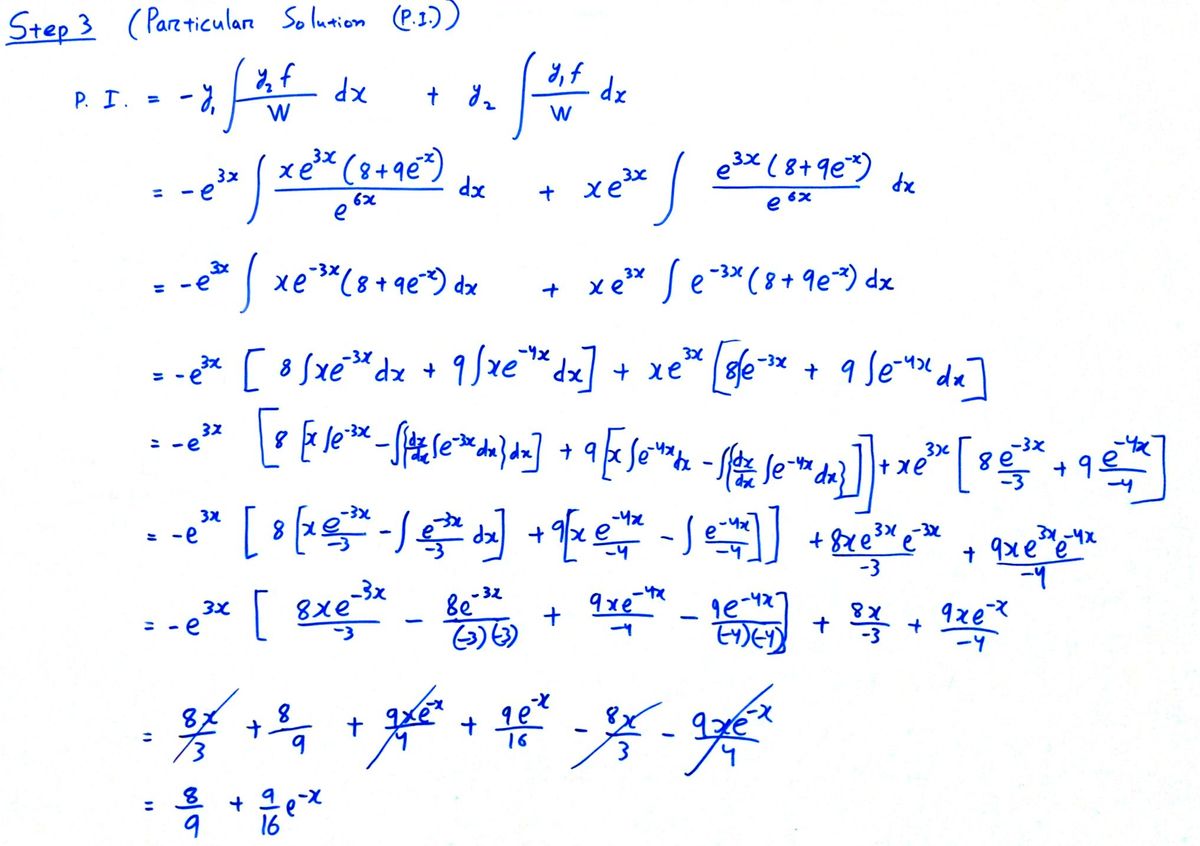 Step 3 (Particular Solution (P.I.))
P. I. = -y₁ ∫ y₂f/W dx + y₂ ∫ y₁f/W dx
= -e^{3x} ∫ xe^{3x}(8+9e^{-x})/e^{6x} dx + xe^{3x} ∫ e^{3x}(8+9e^{-x})/e^{6x} dx
= -e^{3x} ∫ xe^{-3x}(8+9e^{-x}) dx + xe^{3x} ∫ e^{-3x}(8+9e^{-x}) dx
= -e^{3x} [ 8∫xe^{-3x} dx + 9∫xe^{-4x} dx ] + xe^{3x} [ 8∫e^{-3x} + 9∫e^{-4x} dx ]
= -e^{3x} [ 8 [x∫e^{-3x} - ∫{dx/dx ∫e^{-3x} dx} dx] + 9 [x∫e^{-4x} dx - ∫{dx/dx ∫e^{-4x} dx}] ] + xe^{3x} [ 8 e^{-3x}/-3 + 9 e^{-4x}/-4 ]
= -e^{3x} [ 8 [x e^{-3x}/-3 - ∫ e^{-3x}/-3 dx] + 9[x e^{-4x}/-4 - ∫ e^{-4x}/-4] ] + 8xe^{3x}e^{-3x}/-3 + 9xe^{3x}e^{-4x}/-4
= -e^{3x} [ 8xe^{-3x}/-3 - 8e^{-3x}/(-3)(-3) + 9xe^{-4x}/-4 - 9e^{-4x}/(-4)(-4) ] + 8x/-3 + 9xe^{-x}/-4
= 8x/3 + 8/9 + 9xe^{-x}/4 + 9e^{-x}/16 - 8x/3 - 9xe^{-x}/4
= 8/9 + 9/16 e^{-x}